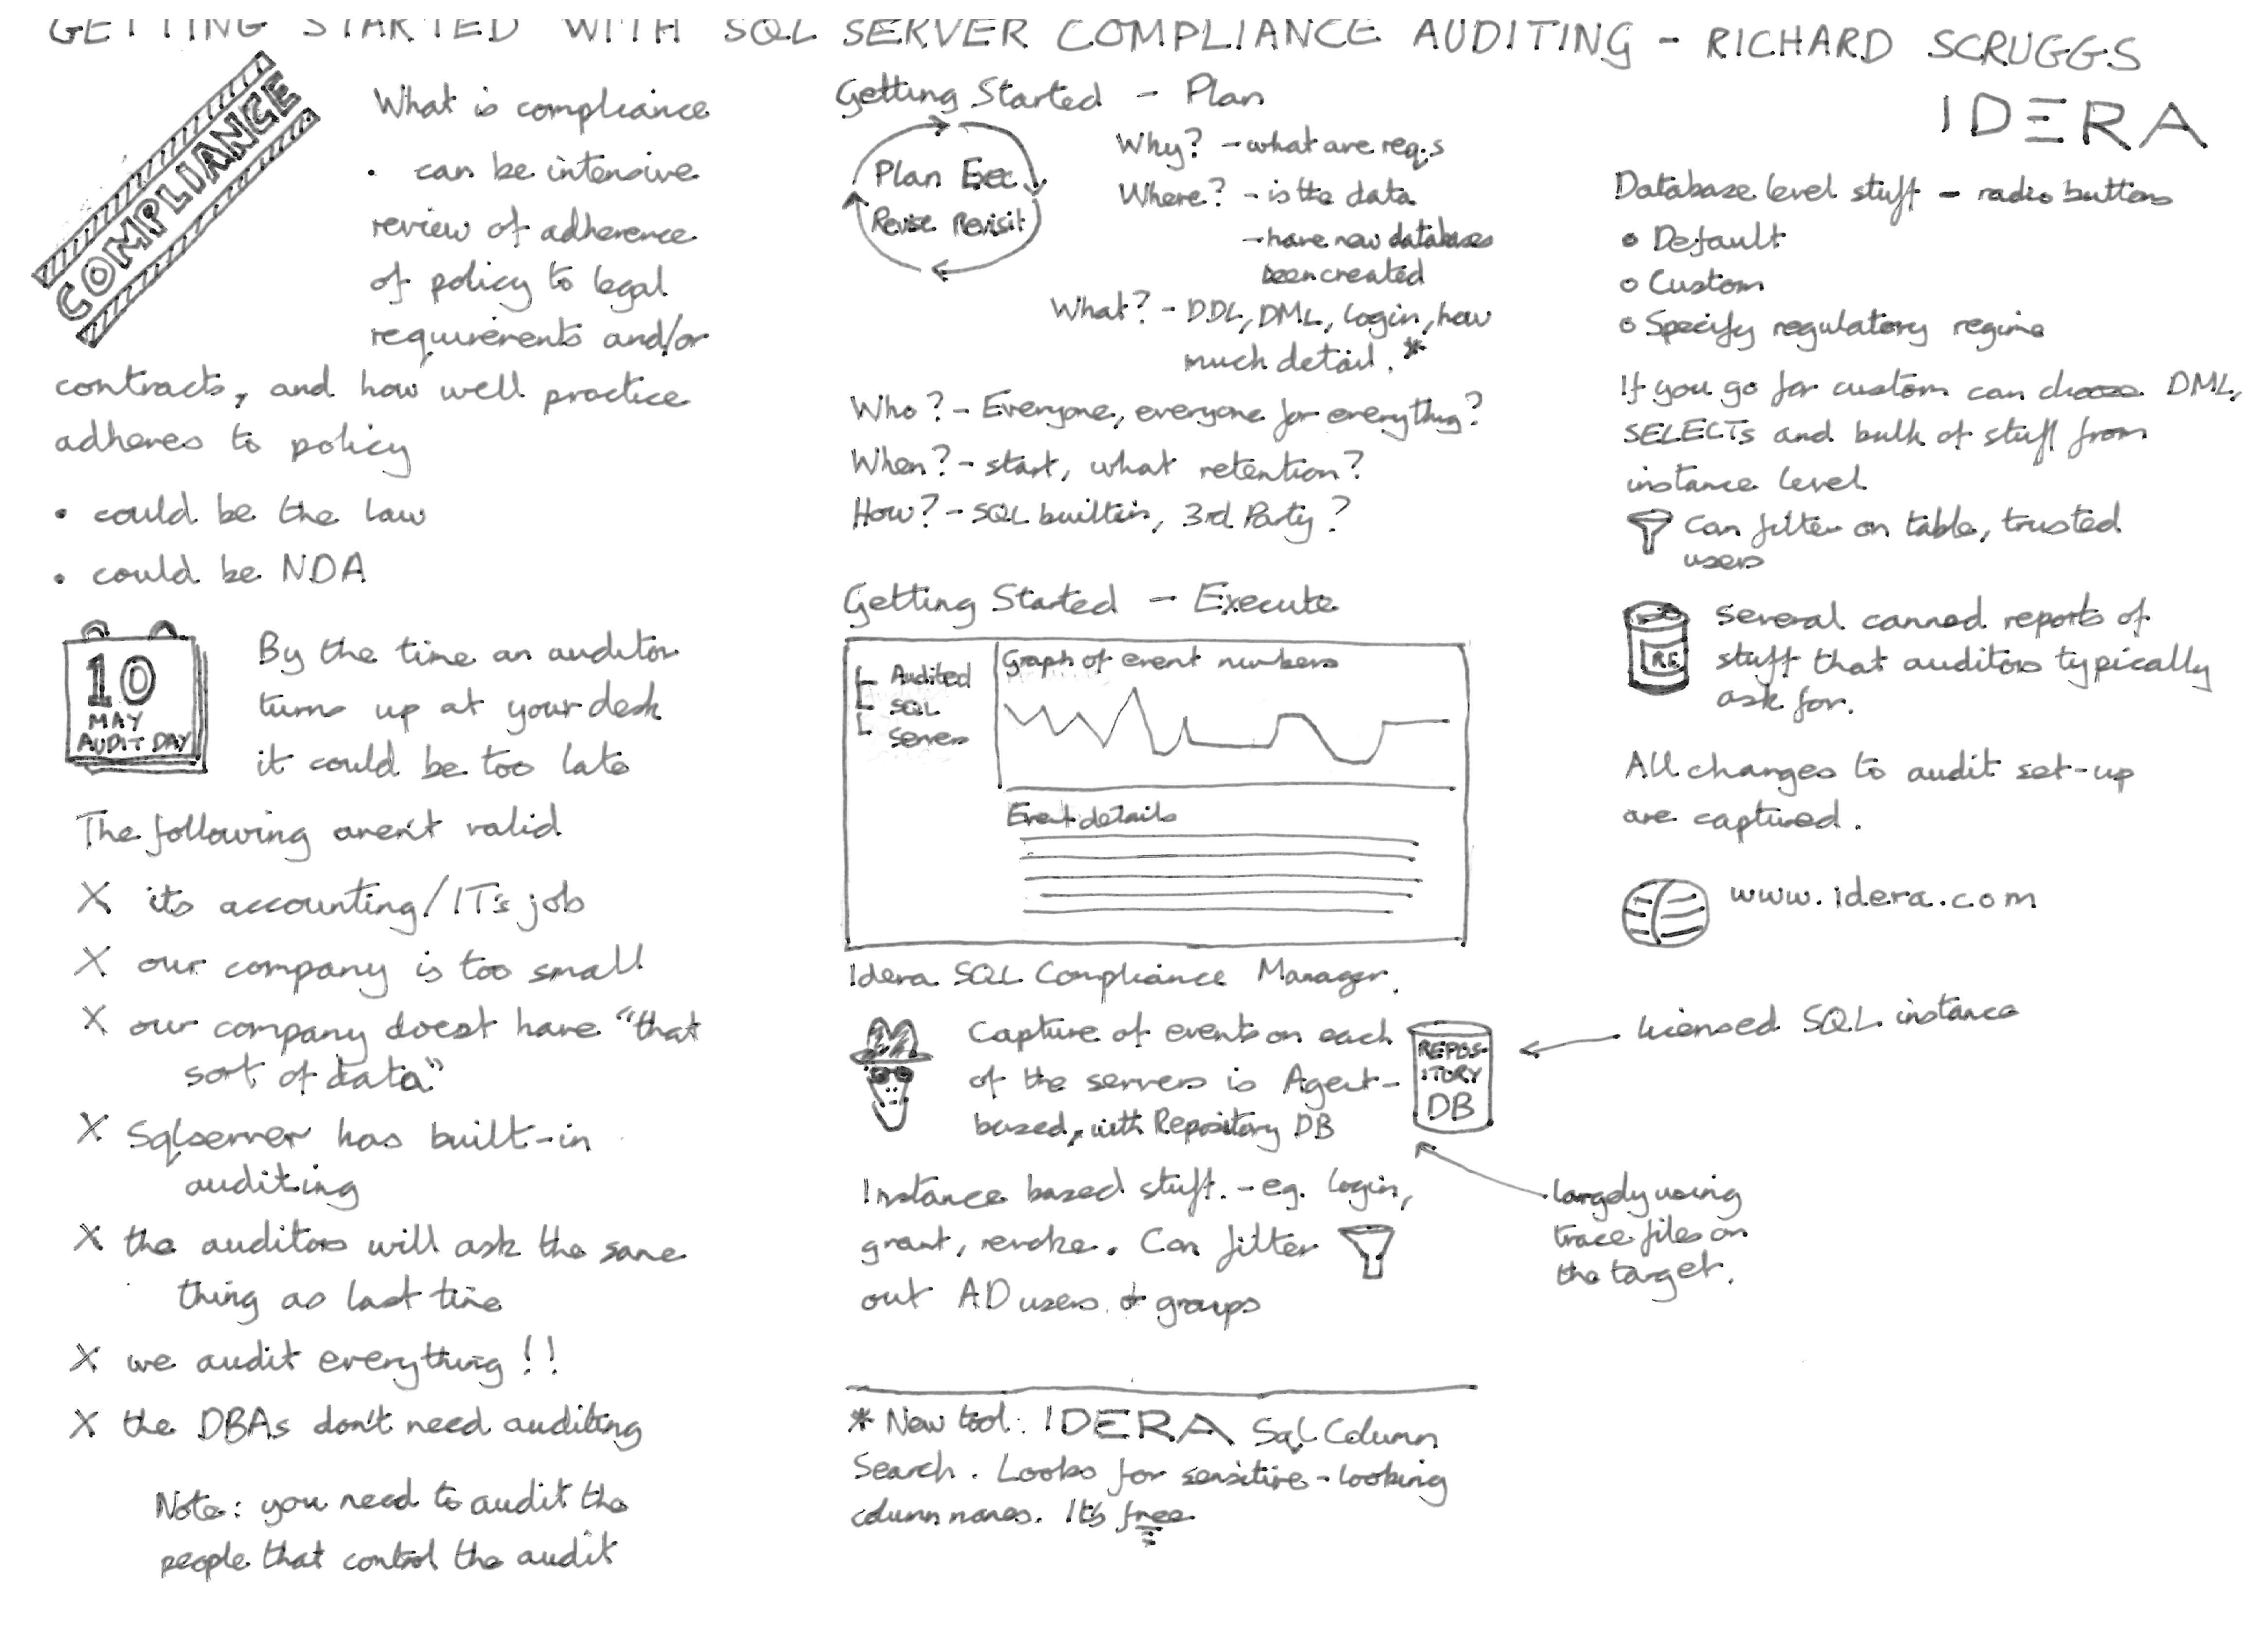 GETTING STARTED WITH SQL SERVER COMPLIANCE AUDITING - RICHARD SCRUGGS
IDERA
COMPLIANCE
What is compliance
• can be intensive
review of adherence
of policy to legal
requirements and/or
contracts, and how well practice
adheres to policy
• could be the law
• could be NDA
10
MAY
AUDIT DAY
By the time an auditor
turns up at your desk
it could be too late
The following aren't valid
X its accounting/IT's job
X our company is too small
X our company doesn't have "that
sort of data"
X Sqlserver has built-in
auditing
X the auditors will ask the same
thing as last time
X we audit everything!!
X the DBAs don't need auditing
Note: you need to audit the
people that control the audit
Getting Started - Plan
Plan Exec
Revise Revisit
Why? - what are req.s
Where? - is the data
- have new databases
been created
What? - DDL, DML, login, how
much detail. *
Who? - Everyone, everyone for everything?
When? - start, what retention?
How? - SQL builtin, 3rd Party?
Getting Started - Execute
Audited
SQL
Servers
Graph of event numbers
Event details
Idera SQL Compliance Manager.
Capture of events on each
of the servers is Agent-
based, with Repository DB
REPOS-
ITORY
DB
Instance based stuff. - eg. login,
grant, revoke. Can filter
out AD users + groups
* New tool: IDERA Sql Column
Search. Looks for sensitive-looking
column names. It's free
Database level stuff - radio buttons
o Default
o Custom
o Specify regulatory regime
If you go for custom can choose DML,
SELECTs and bulk of stuff from
instance level
Can filter on table, trusted
users
RE
Several canned reports of
stuff that auditors typically
ask for.
All changes to audit set-up
are captured.
www.idera.com
licensed SQL instance
largely using
trace files on
the target.